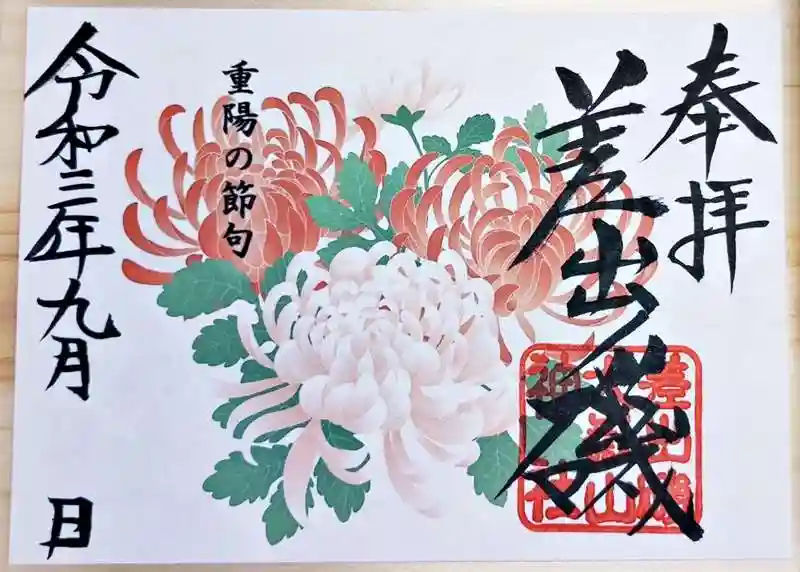 奉拝
差出磯
差出磯
大嶽山
神社
重陽の節句
令和三年九月　日